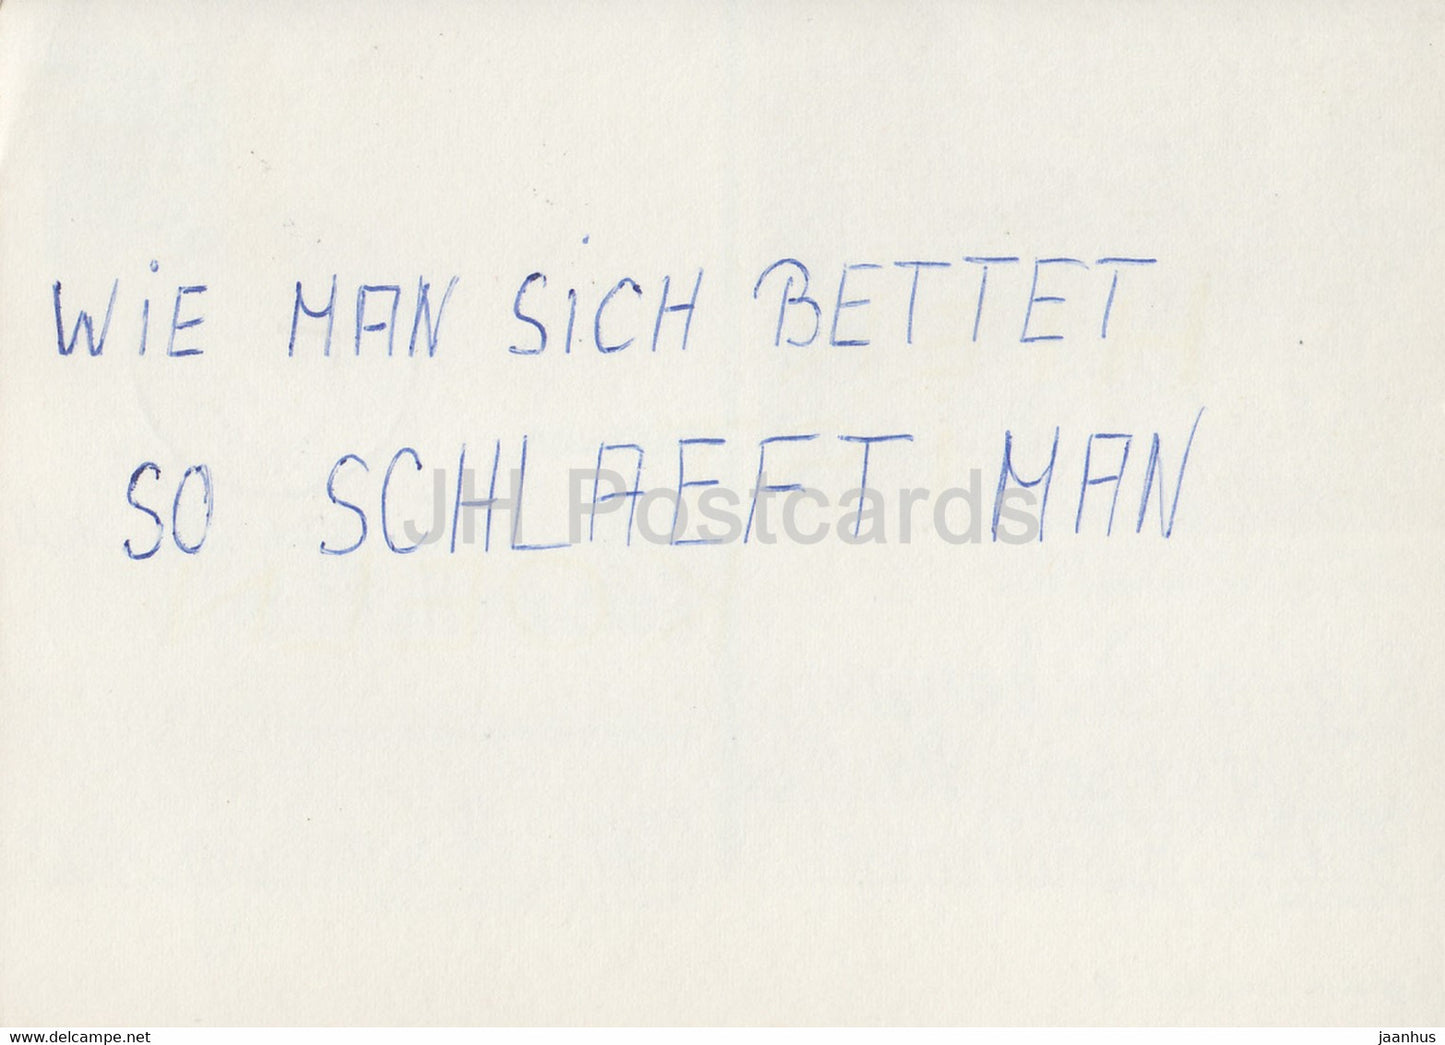 WiE MAN SiCH BETTET
SO SCHLAEFT MAN
JH Postcards
www.delcampe.net
jaanhus